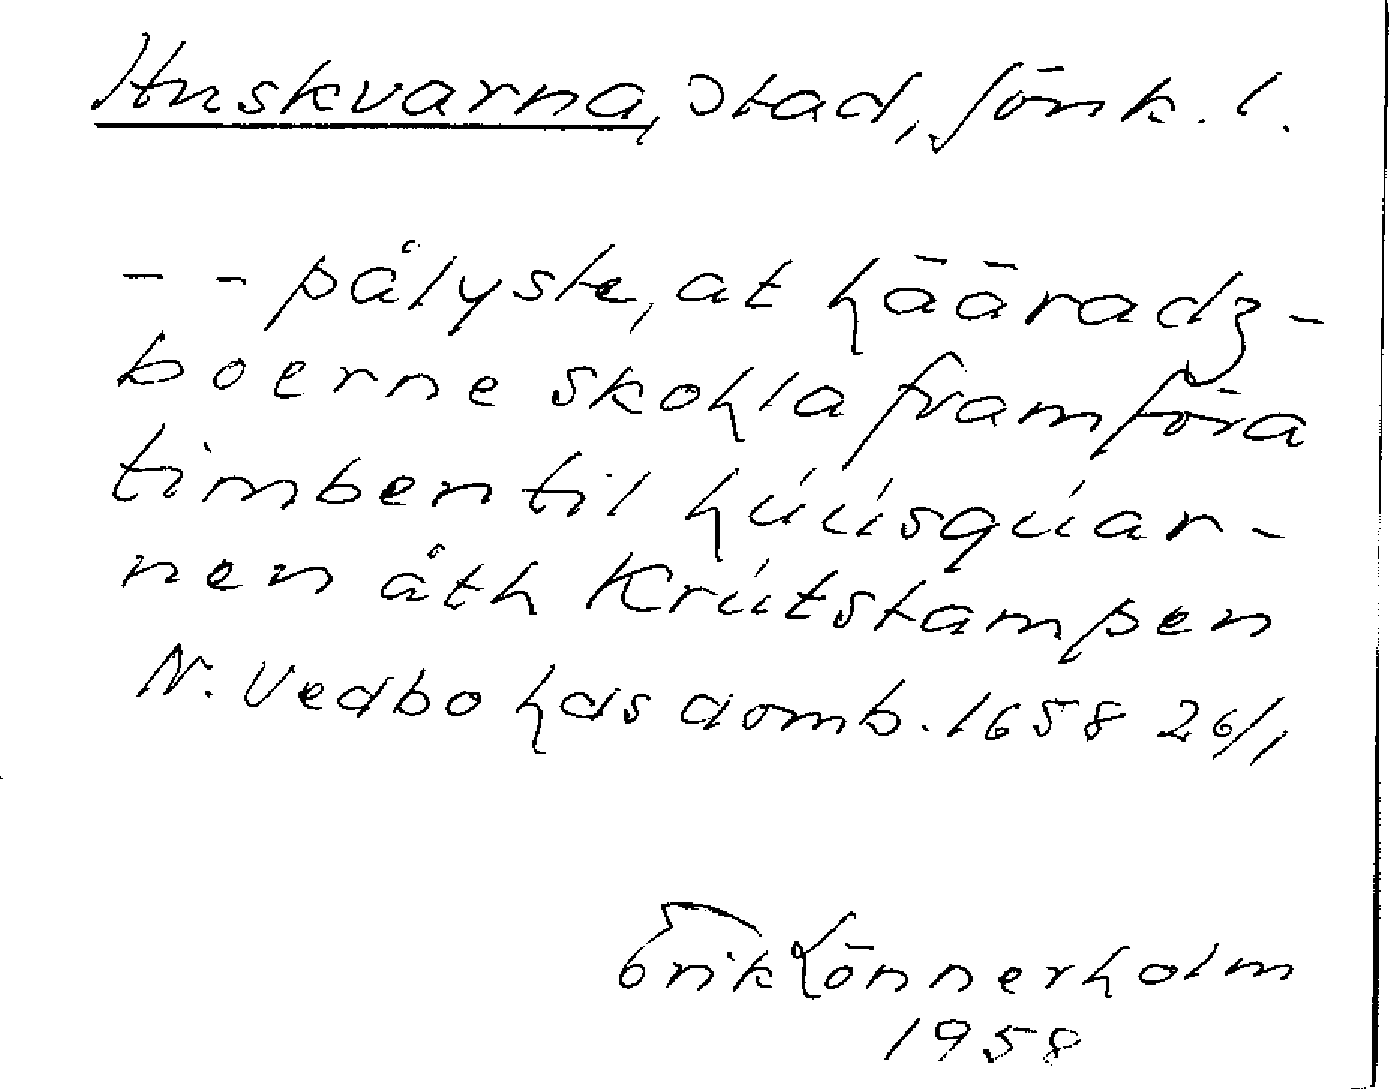 Huskvarna, stad, Jönk. l.
- - pålyste, at hääradz-
boerne skohla framföra
timber til húúsqúar-
nen åth Krútstampen
N. Vedbo hds domb. 1658 26/1
Erik Lönnerholm
1958